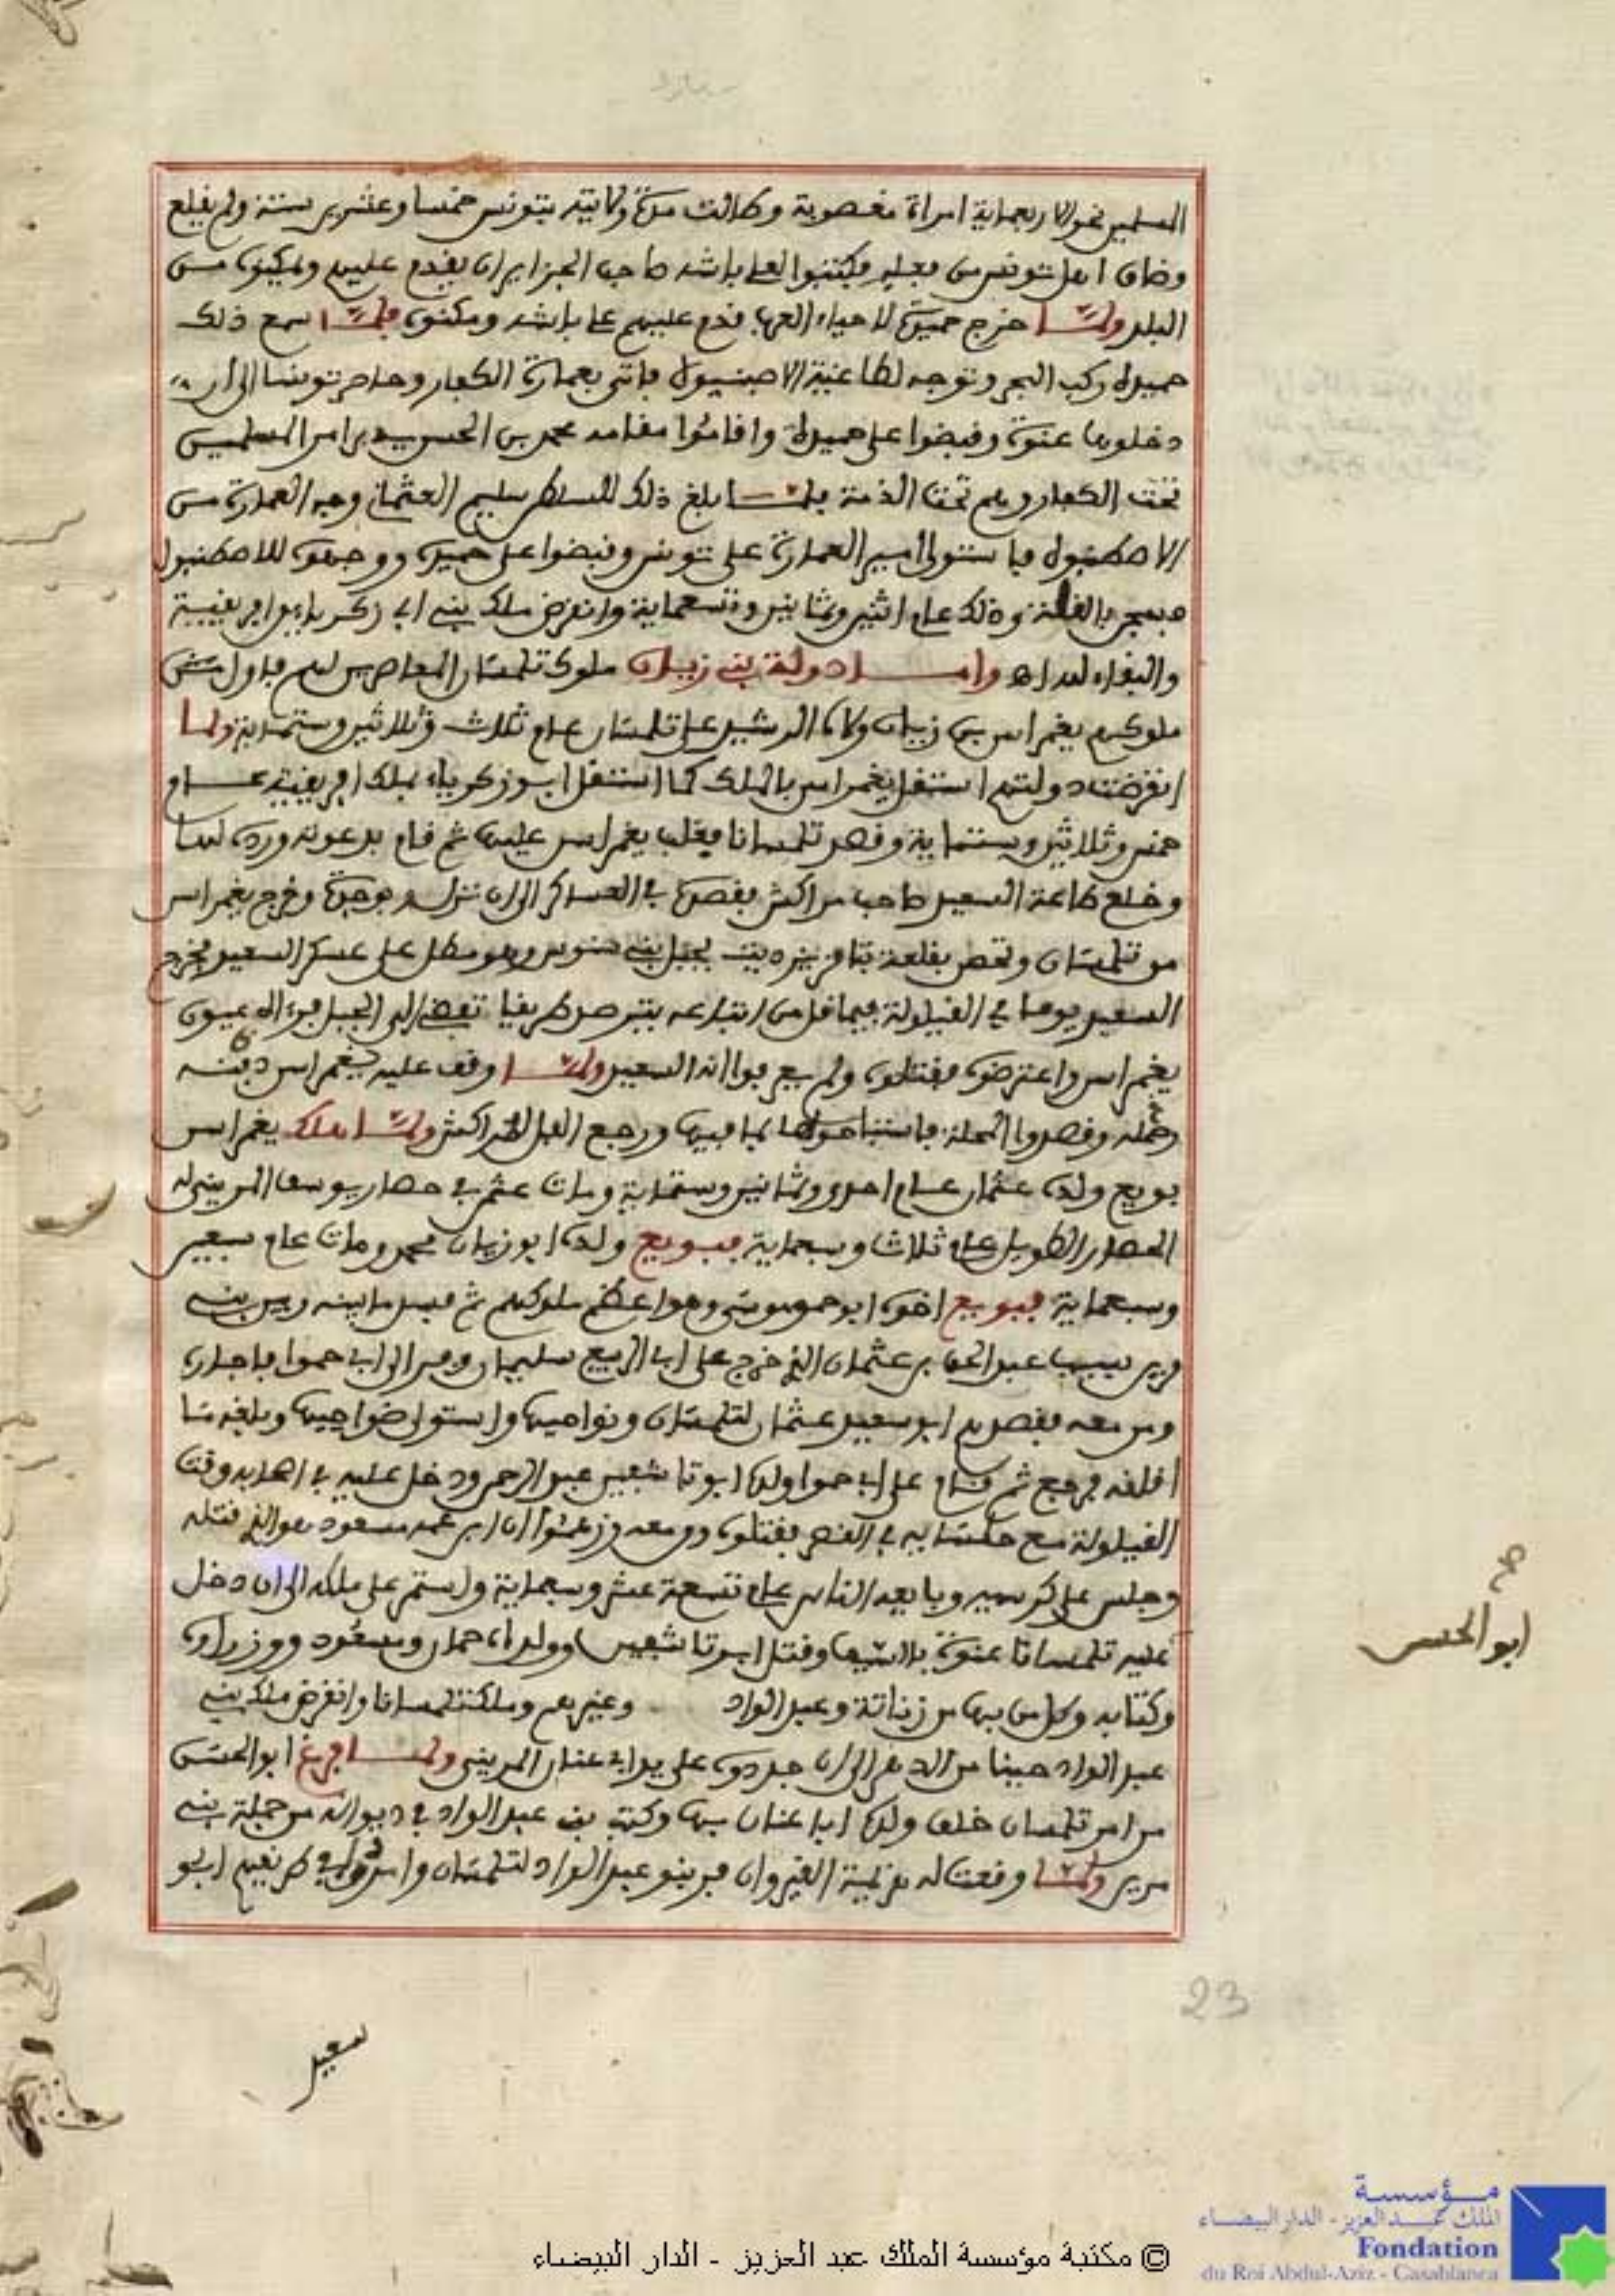 المسلمين نحو الاربعماية امراة مغصوبة وكانت مدة ولايته بتونس خمسا وعشرين سنة ولم يقلع
وضاق اهل تونس من فعله فكتبوا لعلي باشه صاحب الجزاير ان يقدم عليهم ويمكنوه من
البلد ولما خرج حميدة لاحياء العرب قدم عليهم علي باشه ومكنوه فلما سمع ذلك
حميدة ركب البحر وتوجه لطاغية الاصبنيول فاتى بعمارة الكفار وحاصر تونسا الى ان
دخلوها عنوة وقبضوا على حميدة واقاموا مقامه محمد بن الحسن يدبر امر المسلمين
تحت الكفار وهم تحت الذمة فلما بلغ ذلك للسلطن سليم العثماني وجه العمارة من
الاصطنبول فاستولى امير العمارة على تونس وقبضوا على حميدة ووجهوه للاصطنبول
وذلك عام اثنين وثمانين وتسعماية وانقرض ملك بني ابي زكرياء من افريقية
والبقاء لله اه واما دولة بني زيان ملوك تلمسان المعاصرين لهم فاول من
ملوكهم يغمراسن بن زيان ولاه الرشيد على تلمسان عام ثلاث وثلاثين وستماية ولما
انقرضت دولتهم استقل يغمراسن بالملك كما استقل ابو زكرياء بملك افريقية عام
خمس وثلاثين وستماية وقصد تلمسانا فغلب يغمراسن عليها ثم قام بدعوته وردها له
وخلع طاعة السعيد صاحب مراكش فقصده في العساكر الى ان نزل بوجدة وخرج يغمراسن
من تلمسان وتحصن بقلعة تامزيزديت بجبل بني وهو مطل على عسكر السعيد فخرج
السعيد يوما في القيلولة فيما قل من اتباعه يتبرصد طريقا تفضي الى الجبل فرءاه عيون
يغمراسن واعترضوه فقتلوه ولم يعرفوا انه السعيد ولما وقف عليه يغمراسن دفنه
وحمله وقصدوا المحلة فاستباحوها بما فيها ورجع الفل لمراكش ولما هلك يغمراسن
بويع ولده عثمان عام احدى وثمانين وستماية ومات عثمن في حصار يوسف المريني له
الحصار الطويل عام ثلاث وسبعماية فبويع ولده ابو زيان محمد ومات عام سبعين
وسبعماية فبويع اخوه ابو حمو موسى وهو اعظم ملوكهم ثم فسد ما بينه وبين بني
مرين بسبب عبد الحق بن عثمان الذي خرج على ابي الربيع سليمان وفر الى ابي حموا فاجاره
ومن معه فقصدهم ابو سعيد عثمان لتلمسان ونواحيها واستولى ضواحيها وبلغه ما
اقلقه فرجع ثم قام على ابي حموا ولده ابو تاشفين عبد الرحمن ودخل عليه في اصحابه وقت
القيلولة مع جلسايه في القصر فقتلوه ومن معه وزعموا ان ابن عمه مسعود هو الذي قتله
وجلس على كرسيه وبايعه الناس عام تسعة عشر وسبعماية واستمر على ملكه الى ان دخل
عليه تلمسانا عنوة بالسيف وقتل ابو تاشفين وولداه حمان ومسعود ووزراؤه
وكتابه وكل من بها من زناتة وعبد الواد وغيرهم وملكت تلمسانا وانقرض ملك بني
عبد الواد حينا من الدهر الى ان جددوه على يد ابي عنان المريني ولما فرغ ابو الحسن
من امر تلمسان خلف ولده ابا عنان بها وكتب بني عبد الواد في ديوانه من جملة بني
مرين ولما وقعت له هزيمة القيروان فر بنو عبد الواد لتلمسان وامروا في طريقهم ابو
صح
ابو الحسن
سعيد
23
© مكتبة مؤسسة الملك عبد العزيز - الدار البيضاء
مؤسسة
الملك عبد العزيز - الدار البيضاء
Fondation
du Roi Abdul-Aziz - Casablanca